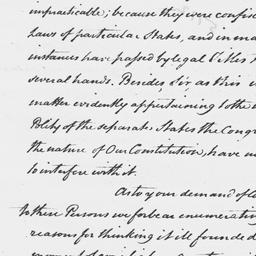 impracticable; because they were confis
Laws of particular States, and in ma
instances have passed by legal Titles t
several hands. Besides, Sir, as this i
matter evidently appertaining to the i
Polity of the separate States the Congr
the nature of Our Constitution, have no
to interfere with it.
As to your demand of C
to these Persons we forbear enumeratin
reasons for thinking it ill founded